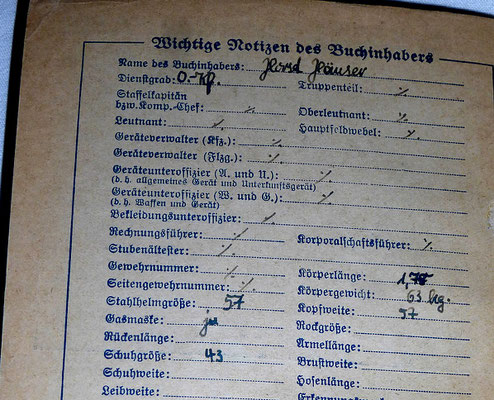 Wichtige Notizen des Buchinhabers
Name des Buchinhabers: Horst Häuser
Dienstgrad: O.-Kp. Truppenteil: ٪
Staffelkapitän
bzw. Komp.-Chef: ٪ Oberleutnant: ٪
Leutnant: ٪ Hauptfeldwebel: ٪
Geräteverwalter (Kfz.): ٪
Geräteverwalter (Flzg.): ٪
Geräteunteroffizier (A. und U.): ٪
(d. h. allgemeines Gerät und Unterkunftsgerät)
Geräteunteroffizier (W. und G.): ٪
(d. h. Waffen und Gerät)
Bekleidungsunteroffizier: ٪
Rechnungsführer: ٪ Korporalschaftsführer: ٪
Stubenältester: ٪
Gewehrnummer: ٪ Körperlänge: 1,75
Seitengewehrnummer: ٪ Körpergewicht: 63 kg.
Stahlhelmgröße: 57 Kopfweite: 57
Gasmaske: ja Rockgröße:
Rückenlänge: Armellänge:
Schuhgröße: 43 Brustweite:
Schuhweite: Hosenlänge:
Leibweite: